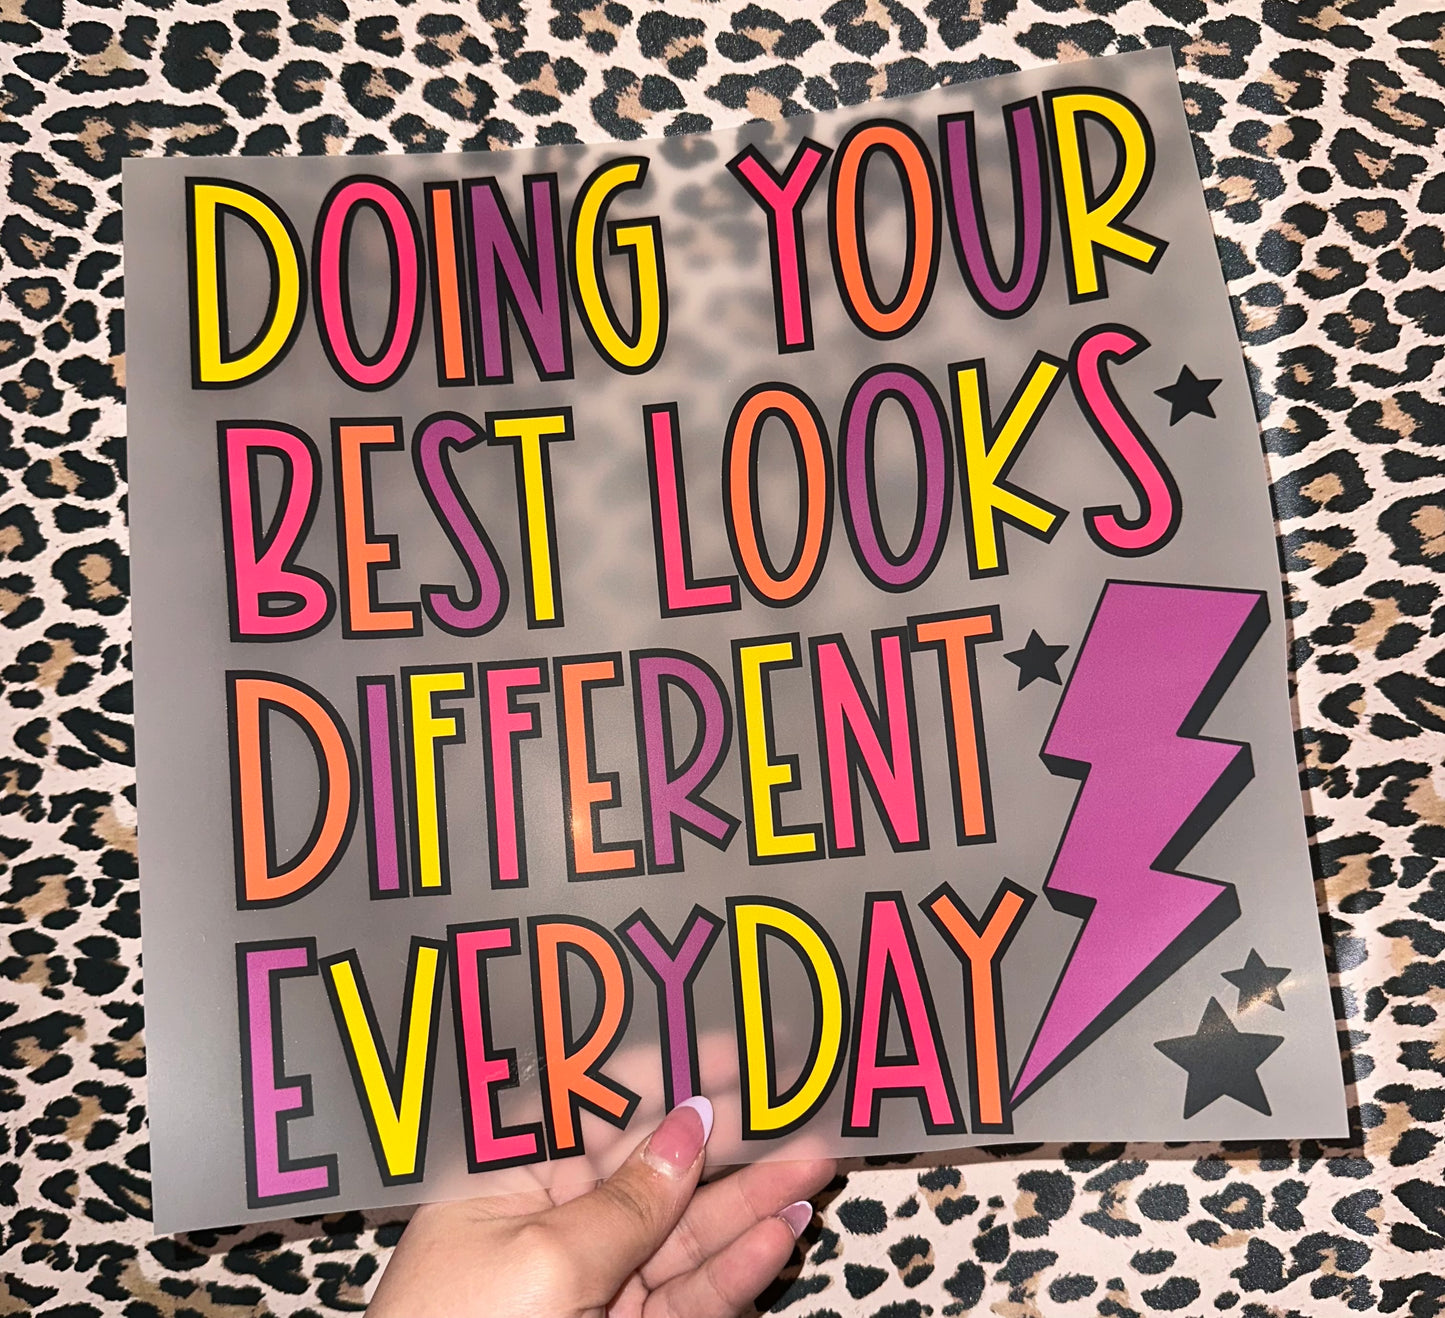 DOING YOUR
BEST LOOKS
DIFFERENT
EVERYDAY